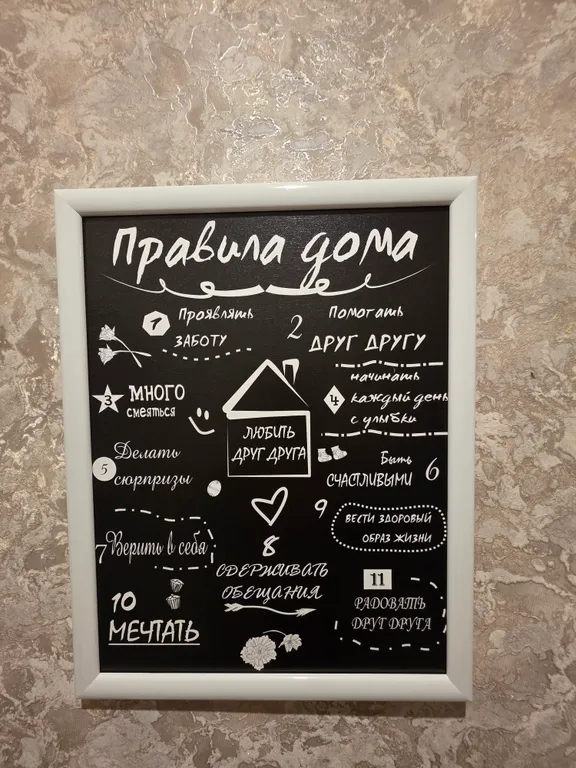 Правила дома
1 Проявлять
ЗАБОТУ
2 Помогать
ДРУГ ДРУГУ
3 МНОГО
смеяться
4 начинать
каждый день
с улыбки
ЛЮБИТЬ
ДРУГ ДРУГА
5 Делать
сюрпризы
Быть
СЧАСТЛИВЫМИ 6
7 Верить в себя
8
СДЕРЖИВАТЬ
ОБЕЩАНИЯ
9 ВЕСТИ ЗДОРОВЫЙ
ОБРАЗ ЖИЗНИ
10
МЕЧТАТЬ
11
РАДОВАТЬ
ДРУГ ДРУГА